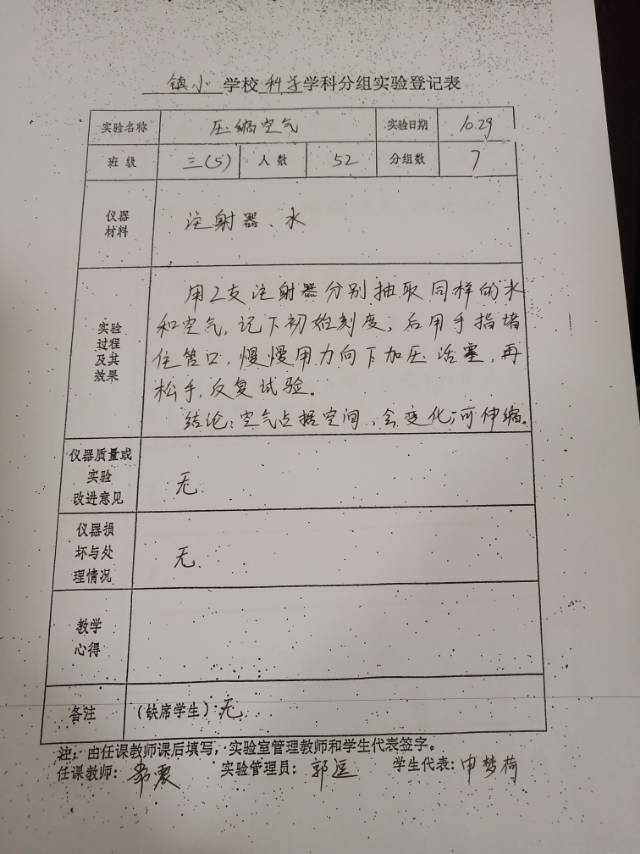 镇小 学校 科学 学科分组实验登记表
实验名称 压缩空气 实验日期 10.29
班级 三(5) 人数 52 分组数 7
仪器
材料
注射器、水
实验
过程
及其
效果
用2支注射器分别抽取同样的水
和空气,记下初始刻度,后用手指堵
住管口,慢慢用力向下加压活塞,再
松手,反复试验。
结论:空气占据空间,会变化,可伸缩。
仪器质量或
实验
改进意见
无.
仪器损
坏与处
理情况
无.
教学
心得
备注 (缺席学生):无.
注:由任课教师课后填写,实验室管理教师和学生代表签字。
任课教师: 实验管理员:郭匡 学生代表:申梦荷